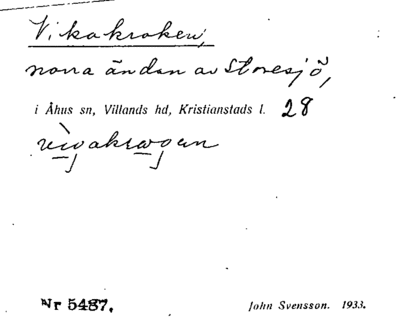 Vikakroken,
norra ändan av Storesjö,
i Åhus sn, Villands hd, Kristianstads l. 28
Nr 5487.
John Svensson. 1933.